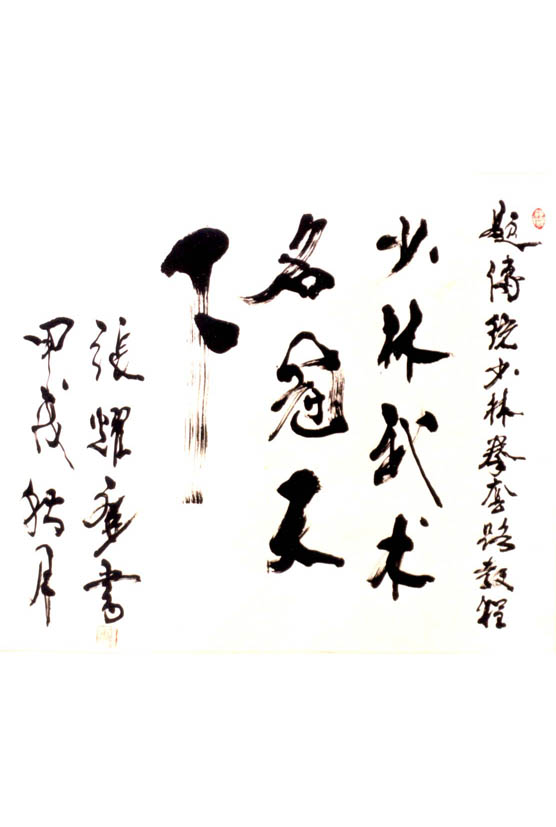 题傳统少林拳套路教程
少林武术
名冠天
下
張耀庭書
甲戌腊月